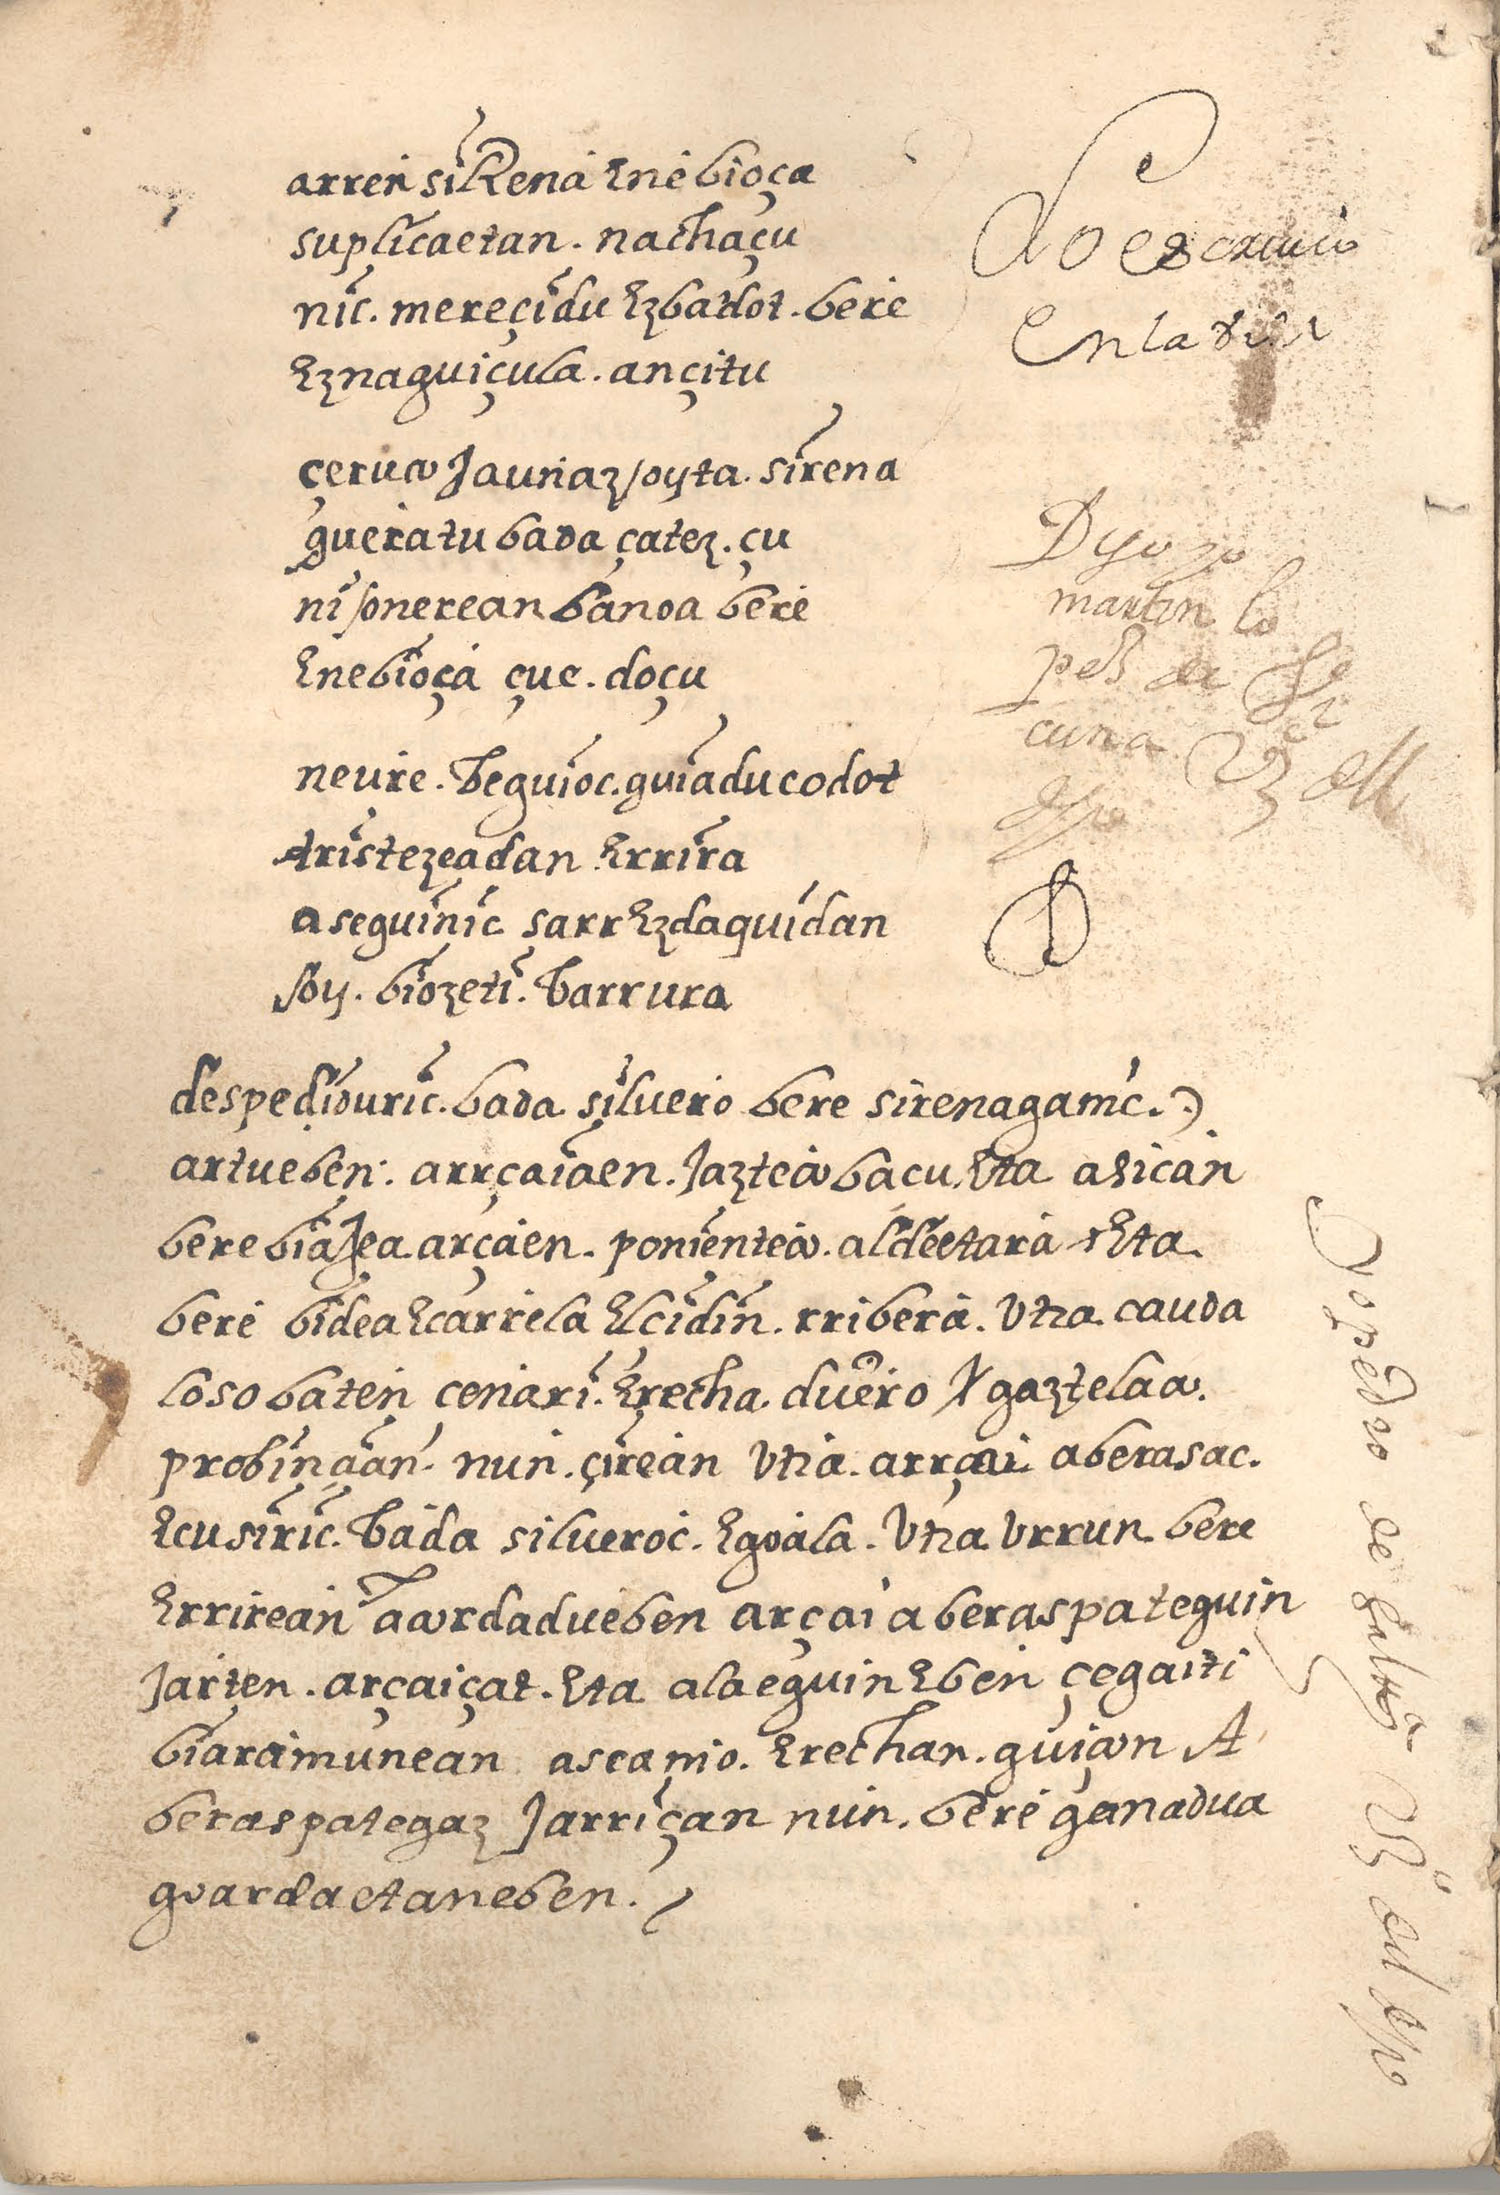 arren siRena Ene bioça
suplicaetan . nachaçu
nic . mereçidu Ezbadot . bere
Eznaguiçula . ançitu
çerua Jaunaz soyta . sirena
gueratu bada çatez . çu
ni sonerean banoa bere
Enebioça çuc . doçu
neure . beguioc . guiaducodot
tristezeadan Errira
aseguinic sarr Ezdaquidan
soy . biozeti . barrura
despediduric . bada siluero bere sirenagamic .
artueben . arrçaiaen . Jaztea bacu . Eta asican
bere biaJea arçaen . ponientea . aldeetara Eta
bere bidea Ecarrela Elcidin . rribera . Utra cauda
loso baten cenari . Erecha . duero gaztelaa .
probinçian . nun . çirean Utra . arrçai aberasac .
Ecusiric . bada silueroc . Egoala . Utra Urrun bere
Errirean aordadueben arçai aberaspateguin
Jarten . arçaiçat . Eta alaeguinEben çegaiti
biaramunean ascanio . Erechan . guiçon A
beraspategaz Jarriçan nun . bere ganadua
guardaetaneben .
Do escriuio
en la
Dijo yo
martin lo
pez de
cuna
Yo pedro de